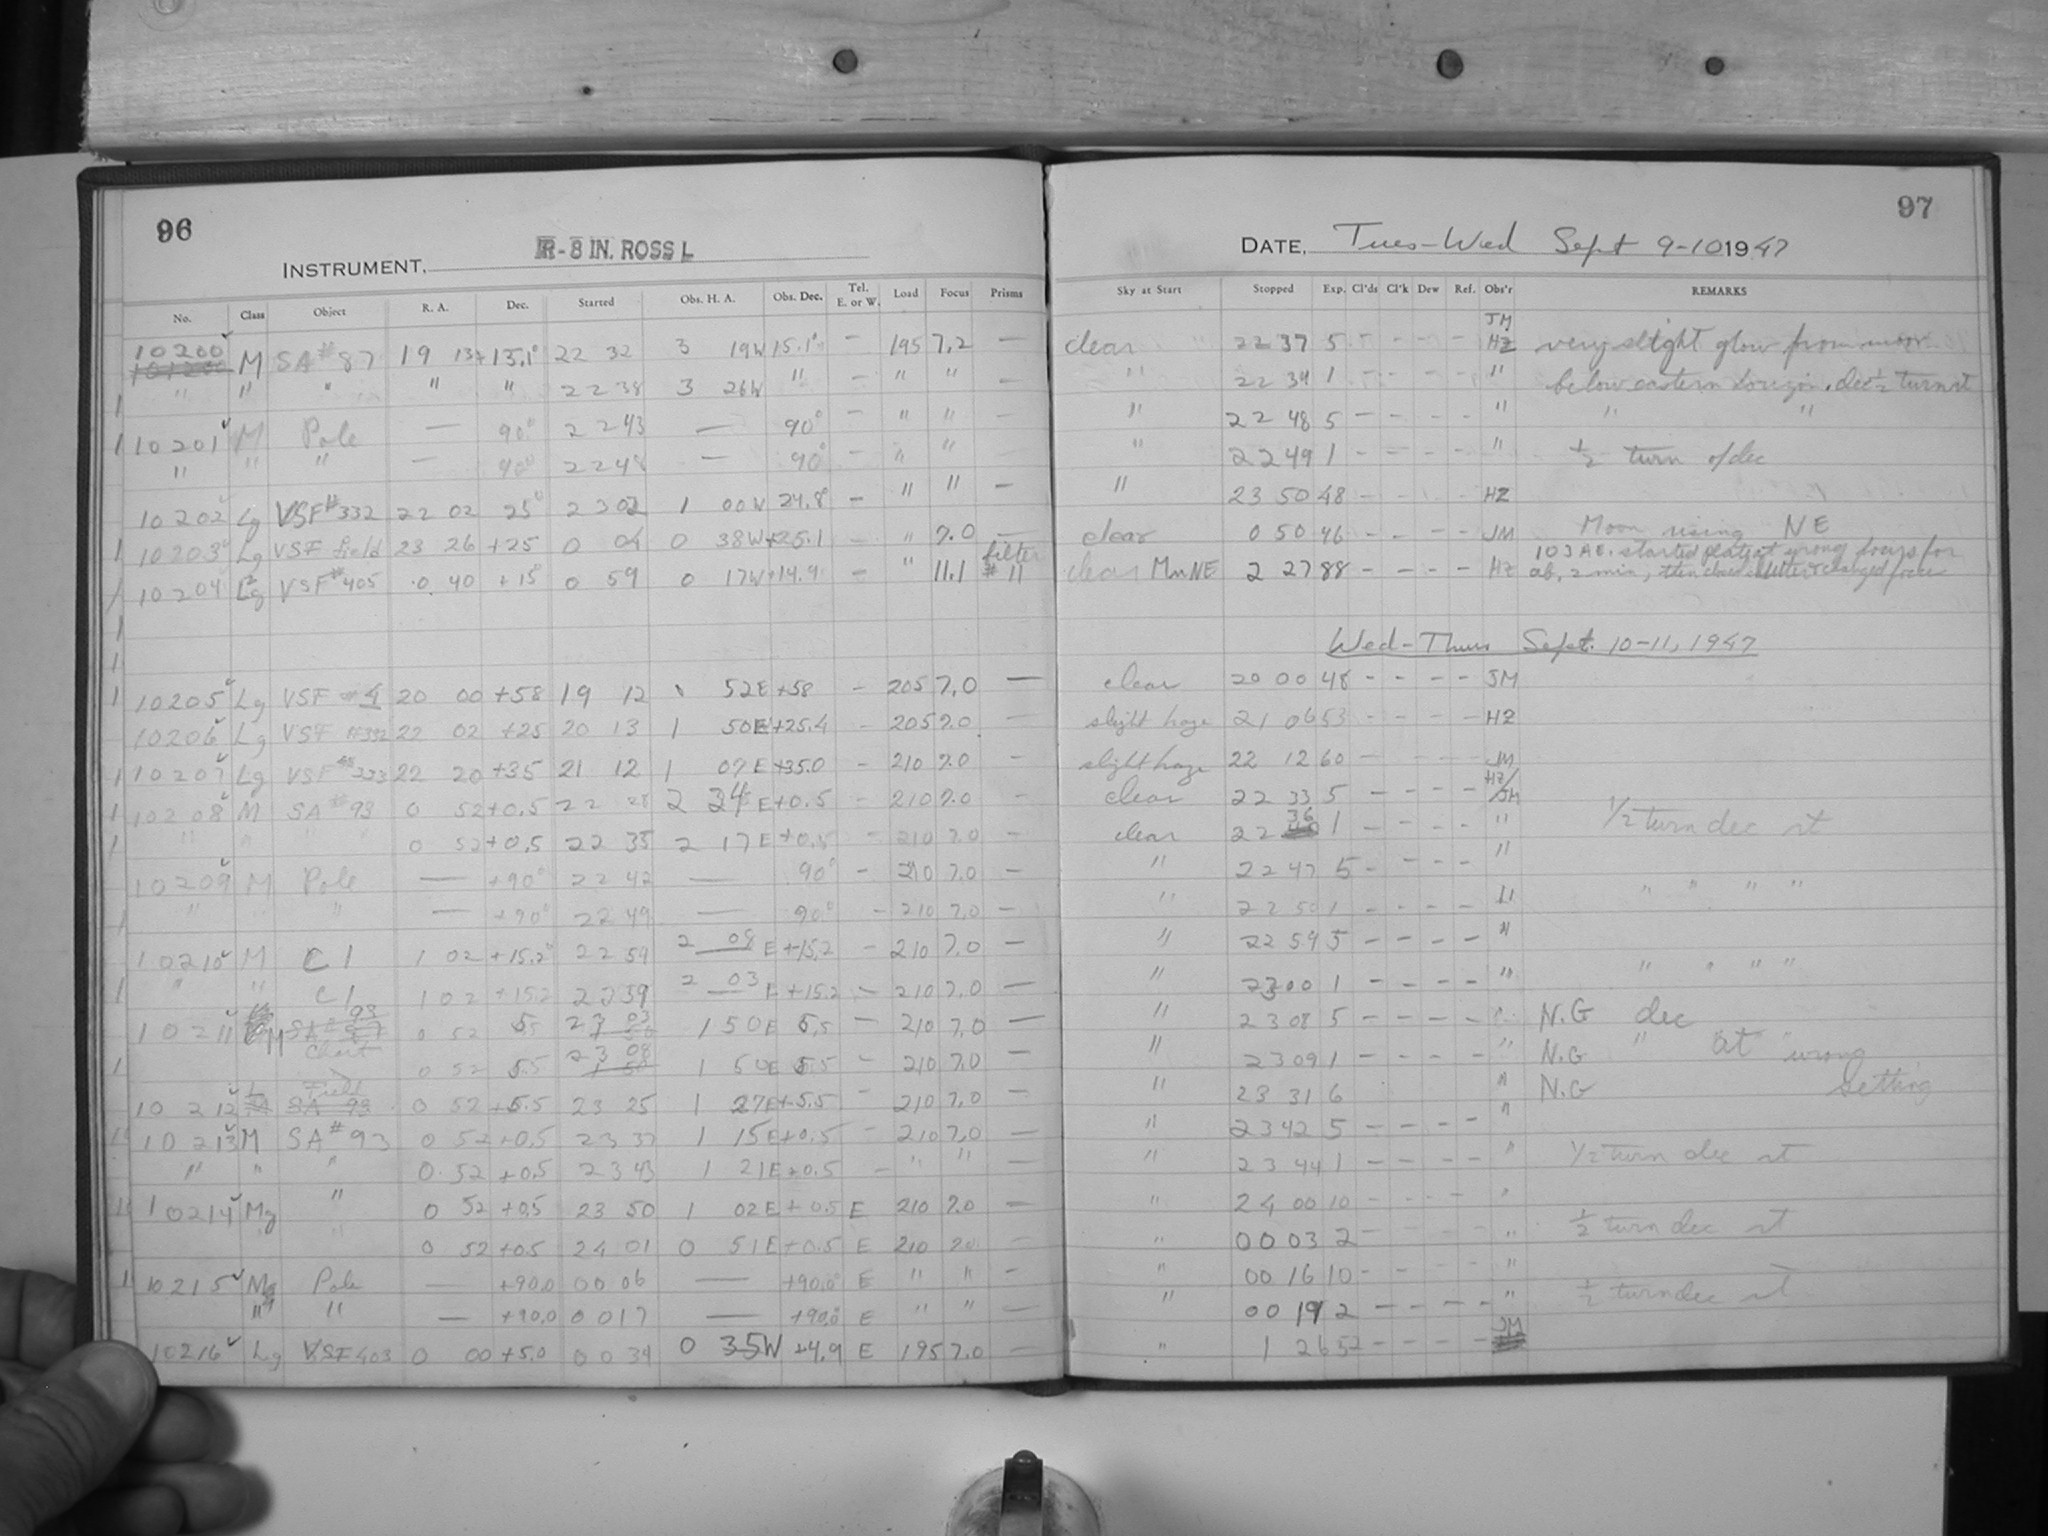 96
INSTRUMENT, IR-8 IN. ROSS L
No. Class Object R. A. Dec. Started Obs. H. A. Obs. Dec. Tel. E. or W. Load Focus Prisms
10200 M SA #87 19 13+ 13.1° 22 32 3 19W 15.1° — 195 7.2 —
" " " " " 22 38 3 26W " — " " —
10201 M Pole — 90° 22 43 — 90° — " "
" " " — 90° 22 48 — 90° — " "
10202 Lg VSF #332 22 02 25° 23 02 1 00W 24.8° — " " —
10203 Lg VSF field 23 26 +25 0 04 0 38W +25.1 — " 7.0 —
10204 Lg VSF #405 0 40 +15° 0 59 0 17W +14.9 — " 11.1 filter #11
10205 Lg VSF #4 20 00 +58 19 12 52E +58 — 205 7.0 —
10206 Lg VSF #332 22 02 +25 20 13 1 50E +25.4 — 205 7.0 —
10207 Lg VSF 333 22 20 +35 21 12 1 07E +35.0 — 210 7.0 —
10208 M SA #93 0 52 +0.5 22 28 2 24E +0.5 — 210 7.0 —
" " " 0 52 +0.5 22 35 2 17E +0.5 — 210 7.0 —
10209 M Pole — +90° 22 42 — 90° — 210 7.0 —
" " " — +90° 22 49 — 90° — 210 7.0 —
10210 M C1 1 02 +15.2° 22 54 2 08E +15.2 — 210 7.0 —
" " C1 1 02 +15.2 22 59 2 03E +15.2 — 210 7.0 —
10211 M SA # 93 0 52 5.5 23 03 1 50E 5.5 — 210 7.0 —
Chart 0 52 5.5 23 08 1 50E 5.5 — 210 7.0 —
10212 Field SA 93 0 52 +5.5 23 25 1 27E +5.5 — 210 7.0 —
10213 M SA #93 0 52 +0.5 23 37 1 15E +0.5 — 210 7.0 —
" " " 0 52 +0.5 23 43 1 21E +0.5 — " " —
10214 Mg " 0 52 +0.5 23 50 1 02E +0.5 E 210 7.0 —
" " 0 52 +0.5 24 01 0 51E +0.5 E 210 7.0 —
10215 Mg Pole — +90.0 00 06 — +90.0° E " " —
" " — +90.0 00 17 — +90.0 E " " —
10216 Lg VSF 403 0 00 +5.0 00 34 0 35W +4.9 E 195 7.0 —
97
DATE, Tues-Wed Sept 9-10 1947
Sky at Start Stopped Exp. Cl'ds Cl'k Dew Ref. Obs'r REMARKS
clear 22 37 5 - - - - JM HZ very slight glow from moon
" 22 39 1 - - - - " below eastern horizon. dec ½ turn st
" 22 48 5 - - - - " " "
" 22 49 1 - - - - " ½ turn of dec
" 23 50 48 - - - - HZ
clear 0 50 46 - - - - JM Moon rising NE
clear Mn NE 2 27 88 - - - - HZ 103AE. started plate at wrong focus for
ab. 2 min, then closed shutter & changed focus
Wed-Thurs Sept. 10-11, 1947
clear 20 00 48 - - - - JM
slight haze 21 06 53 - - - - HZ
slight haze 22 12 60 - - - - JM
clear 22 33 5 - - - - HZ/JM
clear 22 36 1 - - - - " 1/2 turn dec st
" 22 47 5 - - - - "
" 22 50 1 - - - - " " " " "
" 22 59 5 - - - - "
" 23 00 1 - - - - " " " " "
" 23 08 5 - - - - N.G dec
" 23 09 1 - - - - " N.G " at wrong
" 23 31 6 " N.G setting
" 23 42 5 - - - - "
" 23 44 1 - - - - " 1/2 turn dec st
" 24 00 10 - - - - "
" 00 03 2 - - - - " ½ turn dec st
" 00 16 10 - - - - "
" 00 19 2 - - - - " ½ turn dec st
" 1 26 52 - - - - JM